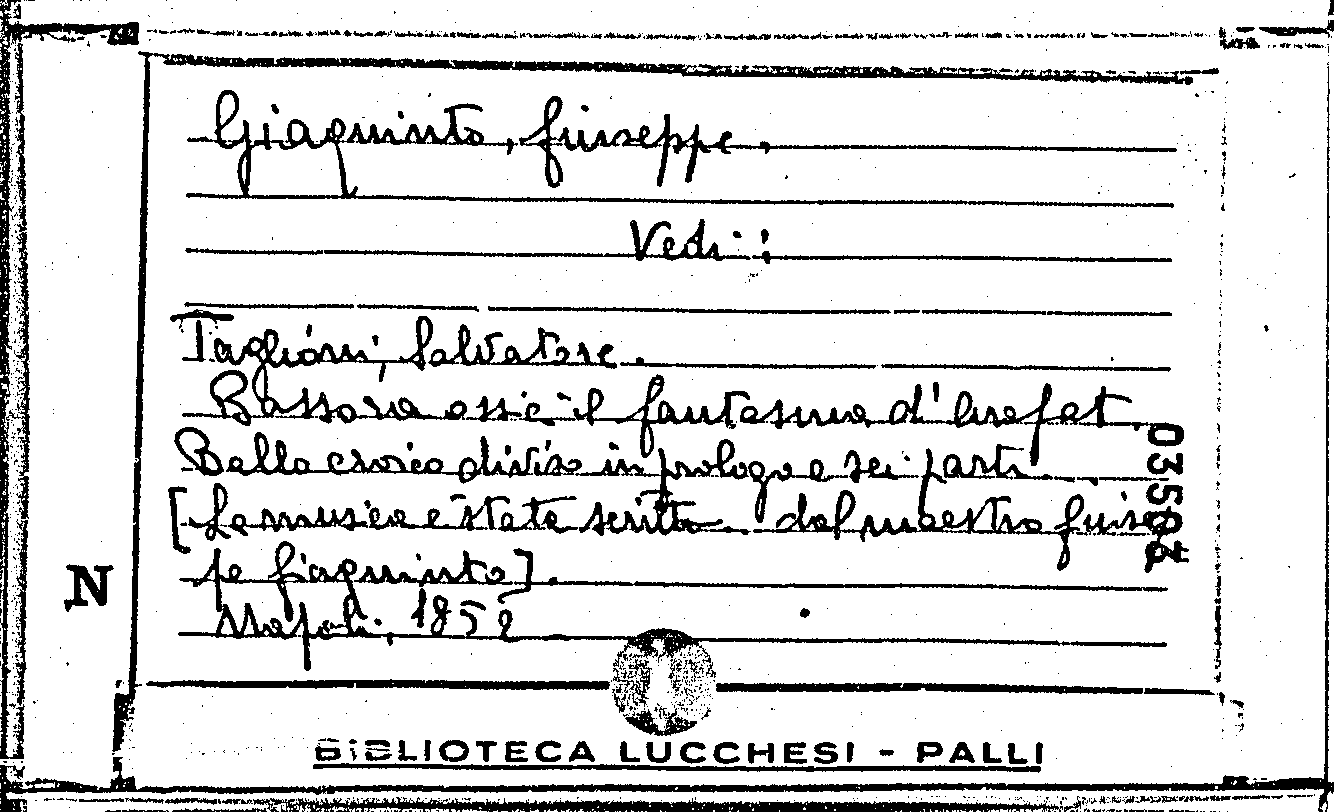 Giaquinto, Giuseppe.
Vedi:
Taglioni, Salvatore.
Bassora ossia il fantasma d'Arafat.
Ballo eroico diviso in prologo e sei parti.
[La musica è stata scritta dal maestro Giusep
pe Giaquinto].
Napoli, 1852
N
BIBLIOTECA LUCCHESI - PALLI